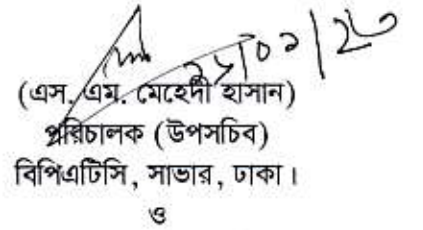 (এস. এম. মেহেদী হাসান)
পরিচালক (উপসচিব)
বিপিএটিসি, সাভার, ঢাকা।
ও